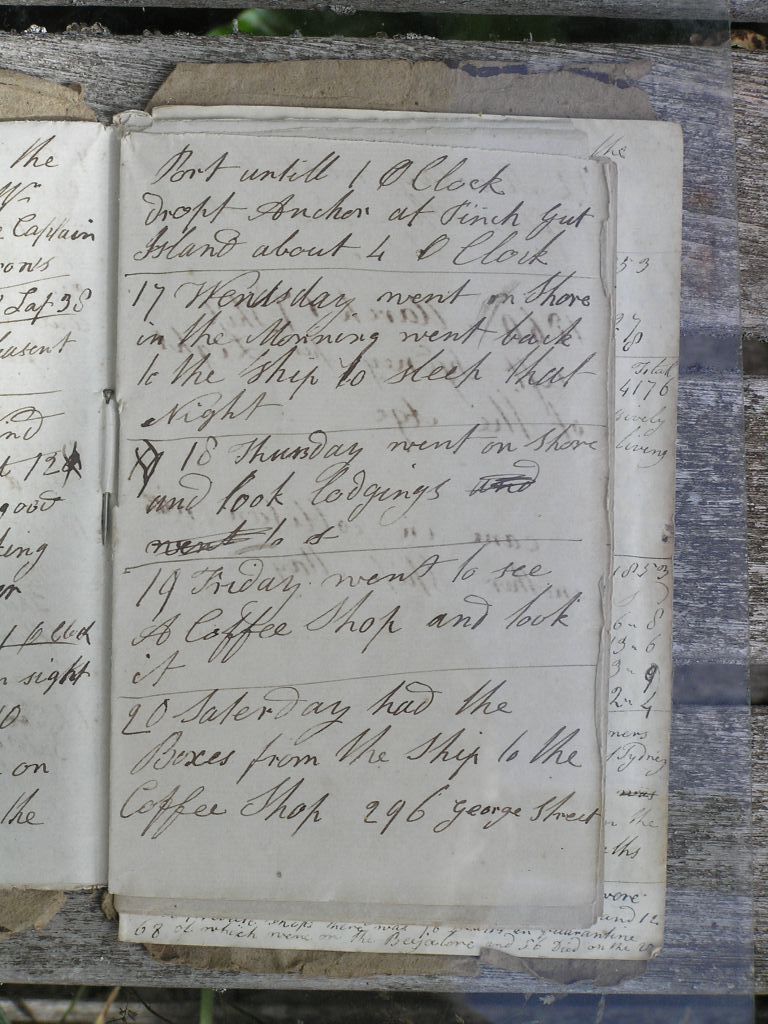 the
Mr
Captain
Lat 38
easent
nd
t 12
good
king
er
1 O Clock
n sight
10
on
the
Port untill 1 O Clock
dropt Anchor at Pinch Gut
Island about 4 O Clock
17 Wendsday went on Shore
in the Morning went back
to the Ship to sleep that
Night
18 Thursday went on Shore
and took lodgings and
went to s
19 Friday went to see
A Coffee Shop and took
it
20 Saterday had the
Boxes from the Ship to the
Coffee Shop 296 George Street
the
53
Total
4176
living
1853
6 - 8
13 - 6
3 - 9
2 - 4
ners
Sydney
was
the
ths
were
and 12
ships there was in Quarantine
68 of which were on the Beejapore and 56 Died on the